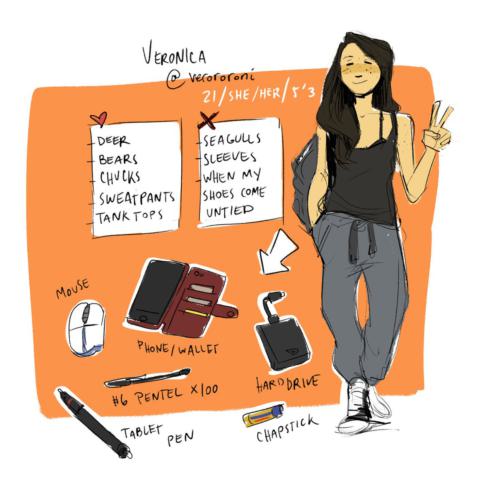 VERONICA
@verororoni
21/SHE/HER/5'3
DEER
BEARS
CHUCKS
SWEATPANTS
TANK TOPS
SEAGULLS
SLEEVES
WHEN MY
SHOES COME
UNTIED
MOUSE
PHONE/WALLET
HARD DRIVE
#6 PENTEL X100
TABLET
PEN
CHAPSTICK